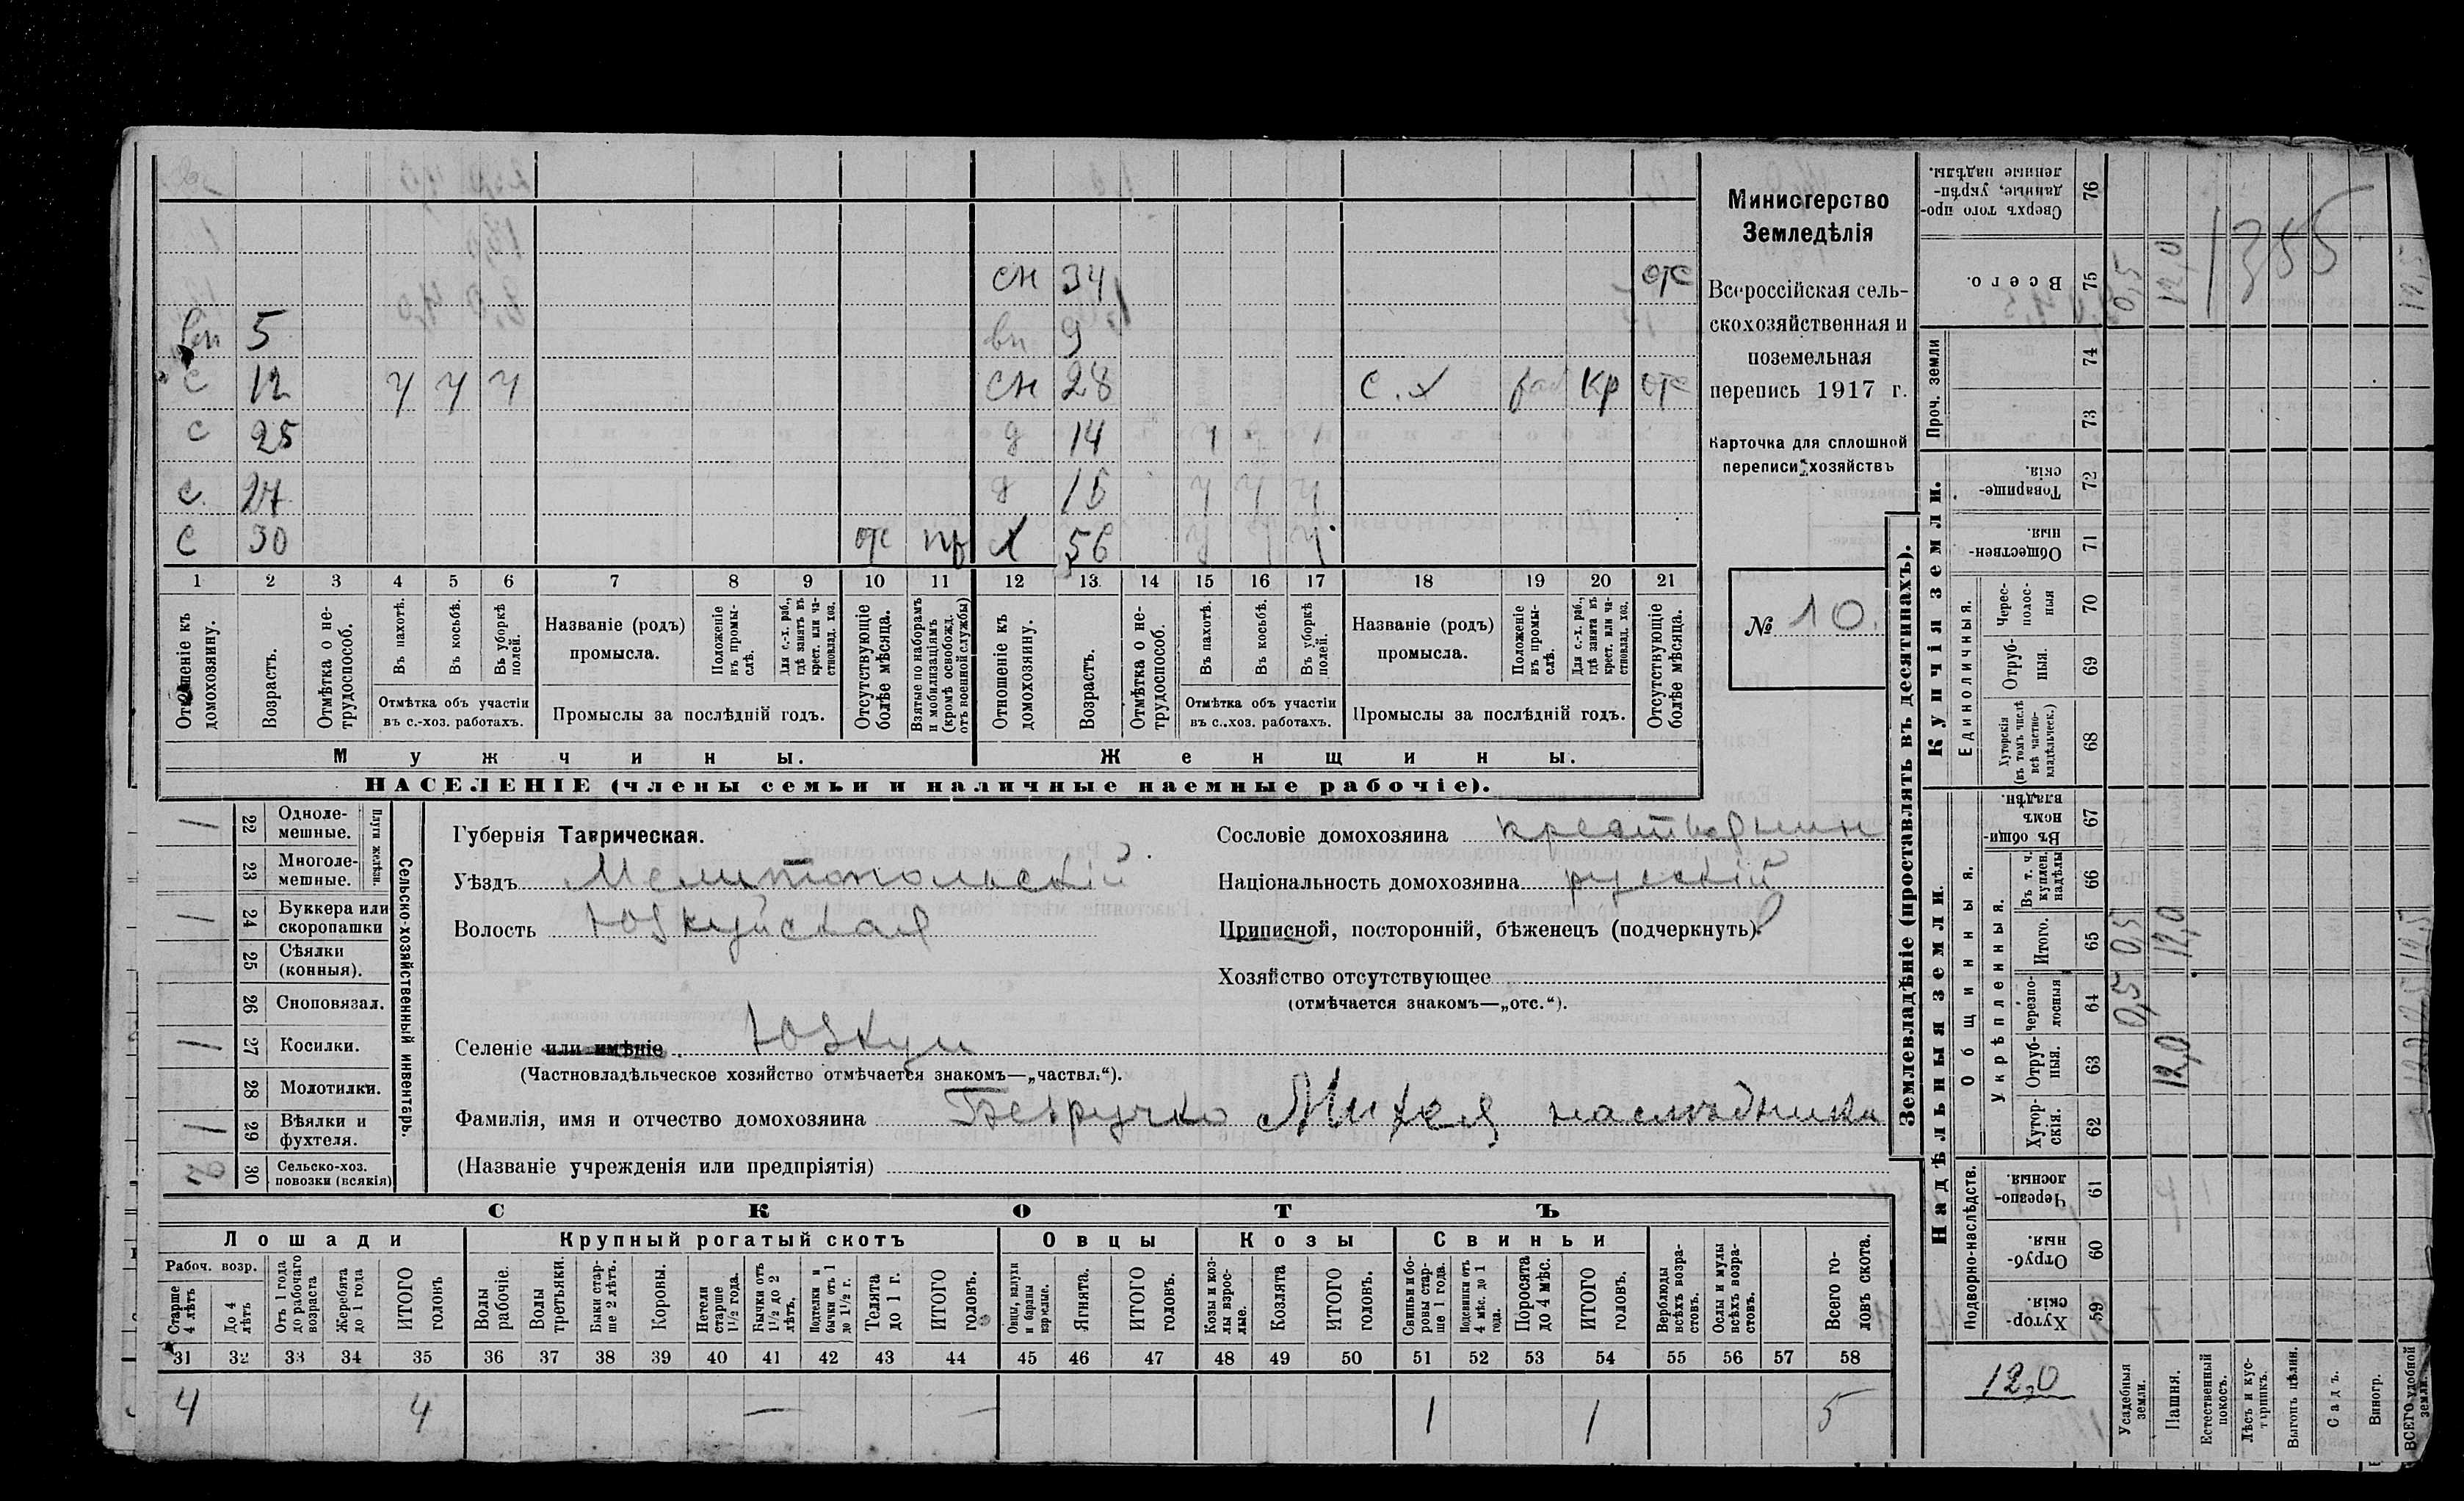 сн 34 отс
вн 5 вн 9
с 12 ч ч ч сн 28 с.х раб кр отс
с 25 д 14 ч ч ч
с. 27 д 16 ч ч ч
с 30 отс пр х 56 ч ч ч
1 2 3 4 5 6 7 8 9 10 11 12 13 14 15 16 17 18 19 20 21
Отношеніе къ домохозяину.
Возрастъ.
Отмѣтка о нетрудоспособ.
Въ пахотѣ.
Въ косьбѣ.
Въ уборкѣ полей.
Отмѣтка объ участіи
въ с.-хоз. работахъ.
Названіе (родъ)
промысла.
Положеніе въ промыслѣ.
Для с.-х. раб., гдѣ занятъ въ крест. или частновлад. хоз.
Промыслы за послѣдній годъ.
Отсутствующіе болѣе мѣсяца.
Взятые по наборамъ и мобилизаціямъ (кромѣ освобожд. отъ военной службы)
Отношеніе къ домохозяину.
Возрастъ.
Отмѣтка о нетрудоспособ.
Въ пахотѣ.
Въ косьбѣ.
Въ уборкѣ полей.
Отмѣтка объ участіи
въ с.-хоз. работахъ.
Названіе (родъ)
промысла.
Положеніе въ промыслѣ.
Для с.-х. раб., гдѣ занята въ крест. или частновлад. хоз.
Промыслы за послѣдній годъ.
Отсутствующіе болѣе мѣсяца.
Мужчины. Женщины.
НАСЕЛЕНІЕ (члены семьи и наличные наемные рабочіе).
Министерство
Земледѣлія
Всероссійская сель-
скохозяйственная и
поземельная
перепись 1917 г.
Карточка для сплошной
переписи хозяйствъ
№ 10.
Сельско-хозяйственный инвентарь.
Плуги желѣзн.
1 22 Одноле-
мешные.
23 Многоле-
мешные.
1 24 Буккера или
скоропашки
25 Сѣялки
(конныя).
26 Сноповязал.
1 27 Косилки.
28 Молотилки.
1 29 Вѣялки и
фухтеля.
2 30 Сельско-хоз.
повозки (всякія)
Губернія Таврическая.
Уѣздъ Мелитопольскій
Волость Юзкуйская
Сословіе домохозяина крестьянин
Національность домохозяина русскій
Приписной, посторонній, бѣженецъ (подчеркнуть).
Хозяйство отсутствующее
(отмѣчается знакомъ—„отс.“).
Селеніе или имѣніе Юзкуи
(Частновладѣльческое хозяйство отмѣчается знакомъ—„частвл.“).
Фамилія, имя и отчество домохозяина Безручко Михея наслѣдники
(Названіе учрежденія или предпріятія)
СКОТЪ
Лошади Крупный рогатый скотъ Овцы Козы Свиньи
Рабоч. возр.
Старше 4 лѣтъ
До 4 лѣтъ
Отъ 1 года до рабочаго возраста
Жеребята до 1 года
ИТОГО головъ
Волы рабочіе.
Волы третьяки.
Быки старше 2 лѣтъ.
Коровы.
Нетели старше 1½ года.
Бычки отъ 1½ до 2 лѣтъ.
Подтелки и бычки отъ 1 до 1½ г.
Телята до 1 г.
ИТОГО головъ.
Овцы, валухи и бараны взрослые.
Ягнята.
ИТОГО головъ.
Козы и козлы взрослые.
Козлята
ИТОГО головъ.
Свиньи и боровы старше 1 года.
Подсвинки отъ 4 мѣс. до 1 года.
Поросята до 4 мѣс.
ИТОГО головъ.
Верблюды всѣхъ возрастовъ.
Ослы и мулы всѣхъ возрастовъ.
Всего головъ скота.
31 32 33 34 35 36 37 38 39 40 41 42 43 44 45 46 47 48 49 50 51 52 53 54 55 56 57 58
4 4 — — 1 1 5
Землевладѣніе (проставлять въ десятинахъ).
Надѣльныя земли. Купчія земли. Проч. земли
Подворно-наслѣдств. Общинныя. Укрѣпленныя. Единоличныя.
Хуторскія 59
Отрубныя. 60
Черезполосныя. 61
Хуторскія. 62
Отрубныя. 63
Черезполосныя 64
Итого. 65
Въ т. ч. куплен. надѣлы 66
Въ общинномъ владѣн. 67
Хуторскія (въ томъ числѣ всѣ частновладѣльческ.) 68
Отрубныя. 69
Чересполосныя 70
Общественныя. 71
Товарищескія. 72
73
74
Всего. 75
Сверхъ того проданные, укрѣпленные надѣлы. 76
12,0
Усадебныя земли. 0,5 0,5 0,5
Пашня. 12,0 12,0 12,0
Естественный покосъ.
Лѣсъ и кустарникъ.
Выгонъ цѣлин.
Садъ.
Виногр.
ВСЕГО удобной земли. 12,0 0,5 12,5 12,5
1355